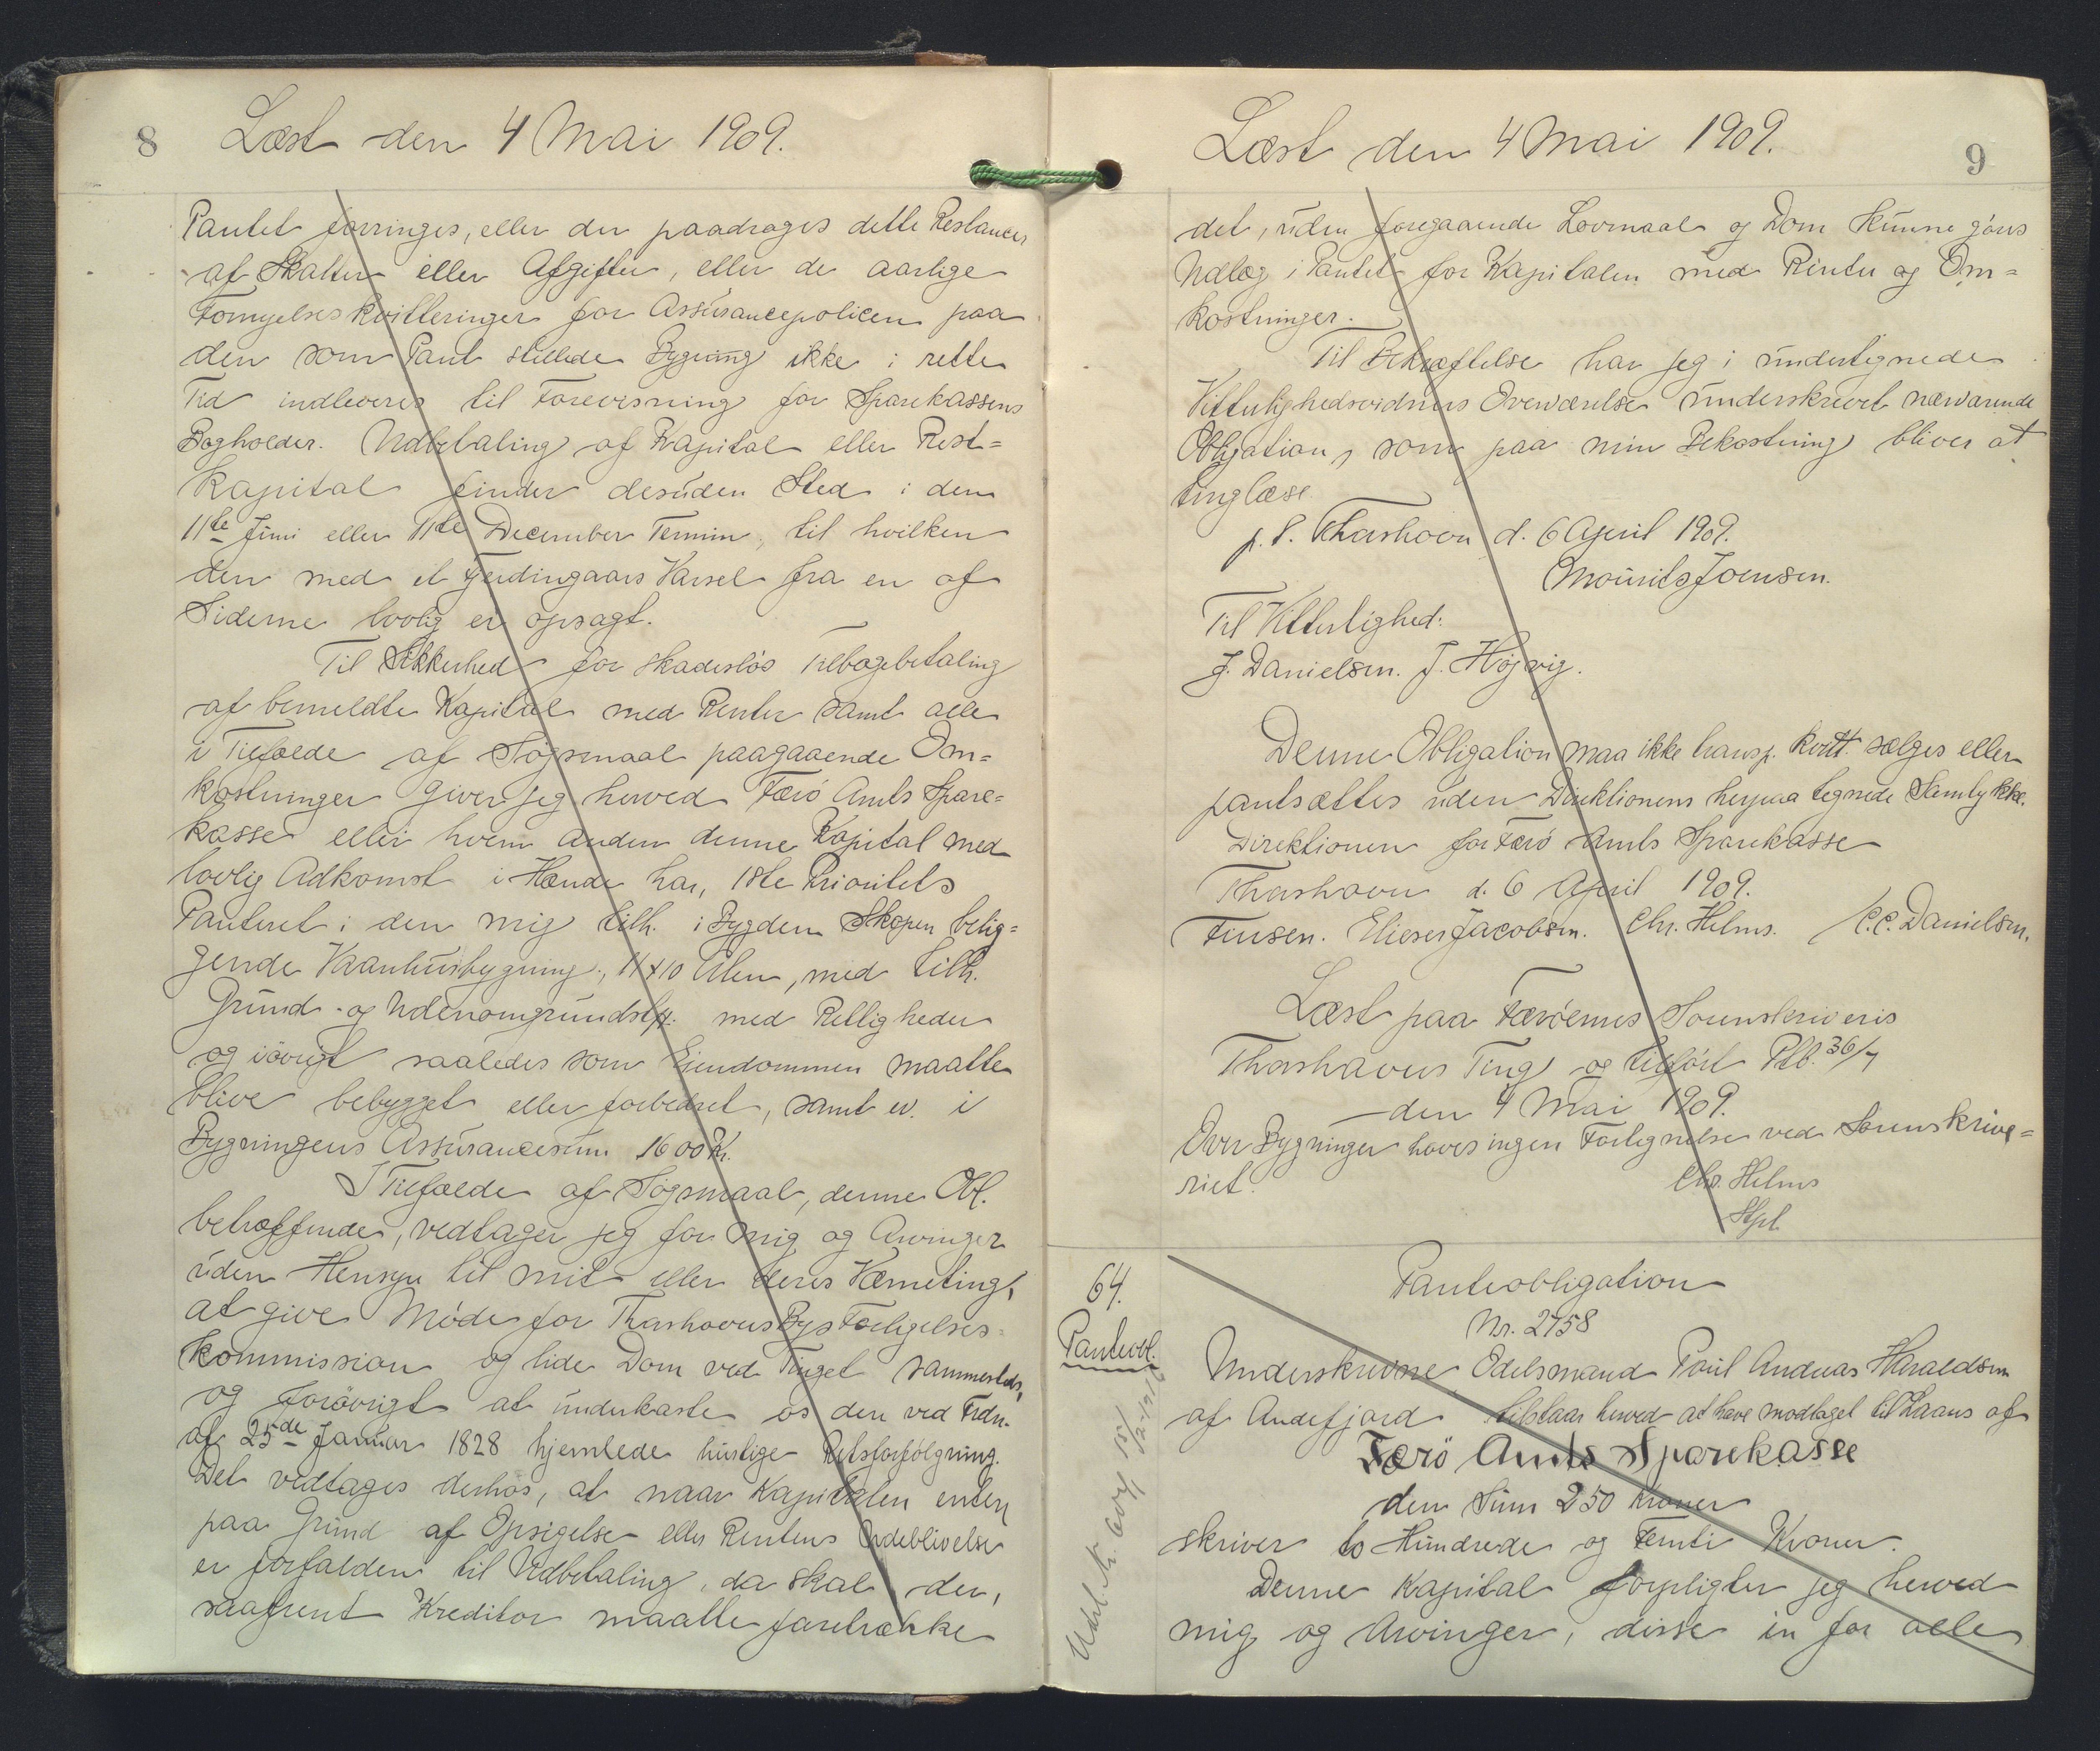 8
Læst den 4 Mai 1909.
Pantet forringes, eller der paadrages dette Restancer
af Skatter eller Afgifter, eller de aarlige
Fornyelseskvitteringer for Assurancepolicen paa
den som Pant stillede Bygning ikke i rette
Tid indleveres til Forevisning for Sparekassens
Bogholder. Udbetaling af Kapital eller Rest=
kapital finder desuden Sted i den
11te Juni eller 11te December Termin, til hvilken
den med et Fjerdingaars Varsel fra en af
Siderne lovlig er opsagt.
Til Sikkerhed for skadesløs Tilbagebetaling
af bemeldte Kapital med Renter samt alle
i Tilfælde af Søgsmaal paagaaende Om=
kostninger giver jeg herved Færø Amts Spare=
kasse eller hvem anden denne Kapital med
lovlig Adkomst i Hænde har, 1ste Prioritets
Panteret i den mig tilh. i Bygden Skopen belig=
gende Vaanhusbygning, 11x10 Alen, med tilh.
Grund- og Udenomgrundstk. med Rettigheder
og iøvrigt saaledes som Ejendommen maatte
blive bebygget eller forbedret, samt ev. i
Bygningens Assurancesum 1600 Kr.
I Tilfælde af Søgsmaal, denne Obl.
betræffende, vedtager jeg for mig og Arvinger
uden Hensyn til mit eller deres Værneting,
at give Møde for Thorshavns Bys Forligelses=
kommission og lide Dom ved Tinget sammesteds,
og forøvrigt at underkaste os den ved Frdn.
af 25de Januar 1828 hjemlede hurtige Retsforfølgning.
Det vedtages derhos, at naar Kapitalen enten
paa Grund af Opsigelse eller Rentens Udeblivelse
er forfalden til Udbetaling, da skal der,
saafremt Kreditor maatte foretrække
Læst den 4 Mai 1909.
9
det, uden foregaaende Lovmaal og Dom kunne gøres
Udlæg i Pantet for Kapitalen med Renter og Om=
kostninger.
Til Bekræftelse har jeg i undertegnede
Vitterlighedsvidners Overværelse underskrevet nærværende
Obligation, som paa min Bekostning bliver at
tinglæse.
p. t. Thorshavn d. 6 April 1909.
Mourits Joensen.
Til Vitterlighed:
J. Danielsen. J. Højvig.
Denne Obligation maa ikke transp. kvitt. sælges eller
pantsættes uden Direktionens herpaa tegnede Samtykke.
Direktionen for Færø Amts Sparekasse
Thorshavn d. 6 April 1909.
Finsen. Elieser Jacobsen. Chr. Helms. C.C. Danielsen.
Læst paa Færøernes Sorenskriveris
Thorshavns Ting og tilført Ptb. 36/7
den 4 Mai 1909.
Over Bygninger haves ingen Fortegnelse ved Sorenskrive=
riet.
Chr. Helms
Stpl.
64.
Panteobl.
Panteobligation
Nr. 2758
Underskrevne Odelsmand Poul Andreas Haraldsen
af Andefjord tilstaar herved at have modtaget til Laans af
Færö Amts Sparekasse
den Sum 250 Kroner
skriver to Hundrede og Femti Kroner.
Denne Kapital forpligter jeg herved
mig og Arvinger, disse in for alle